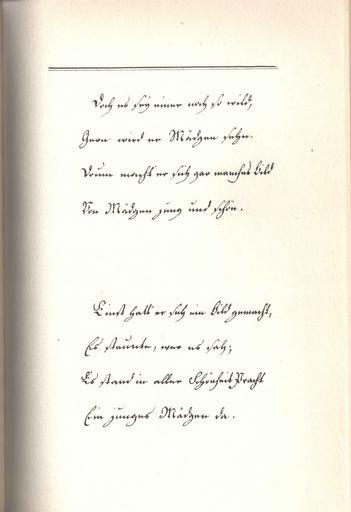 Doch es sey einer noch so wild,
Gern wird er Mädgen sehn.
Drum macht' er sich gar manches Bild
Von Mädgen jung und schön.
Einst hatt' er sich ein Bild gemacht,
Es staunte, wer es sah;
Es stand in aller Schönheit Pracht
Ein junges Mädgen da.